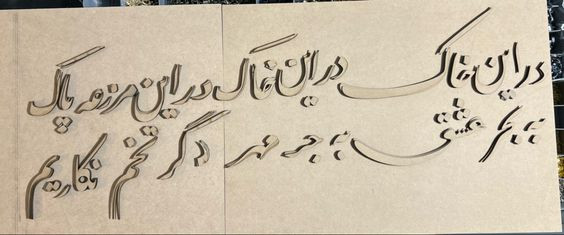 در این خاک در این خاک در این مزرعه پاک
به جز عشق به جز مهر دگر تخم نکاریم